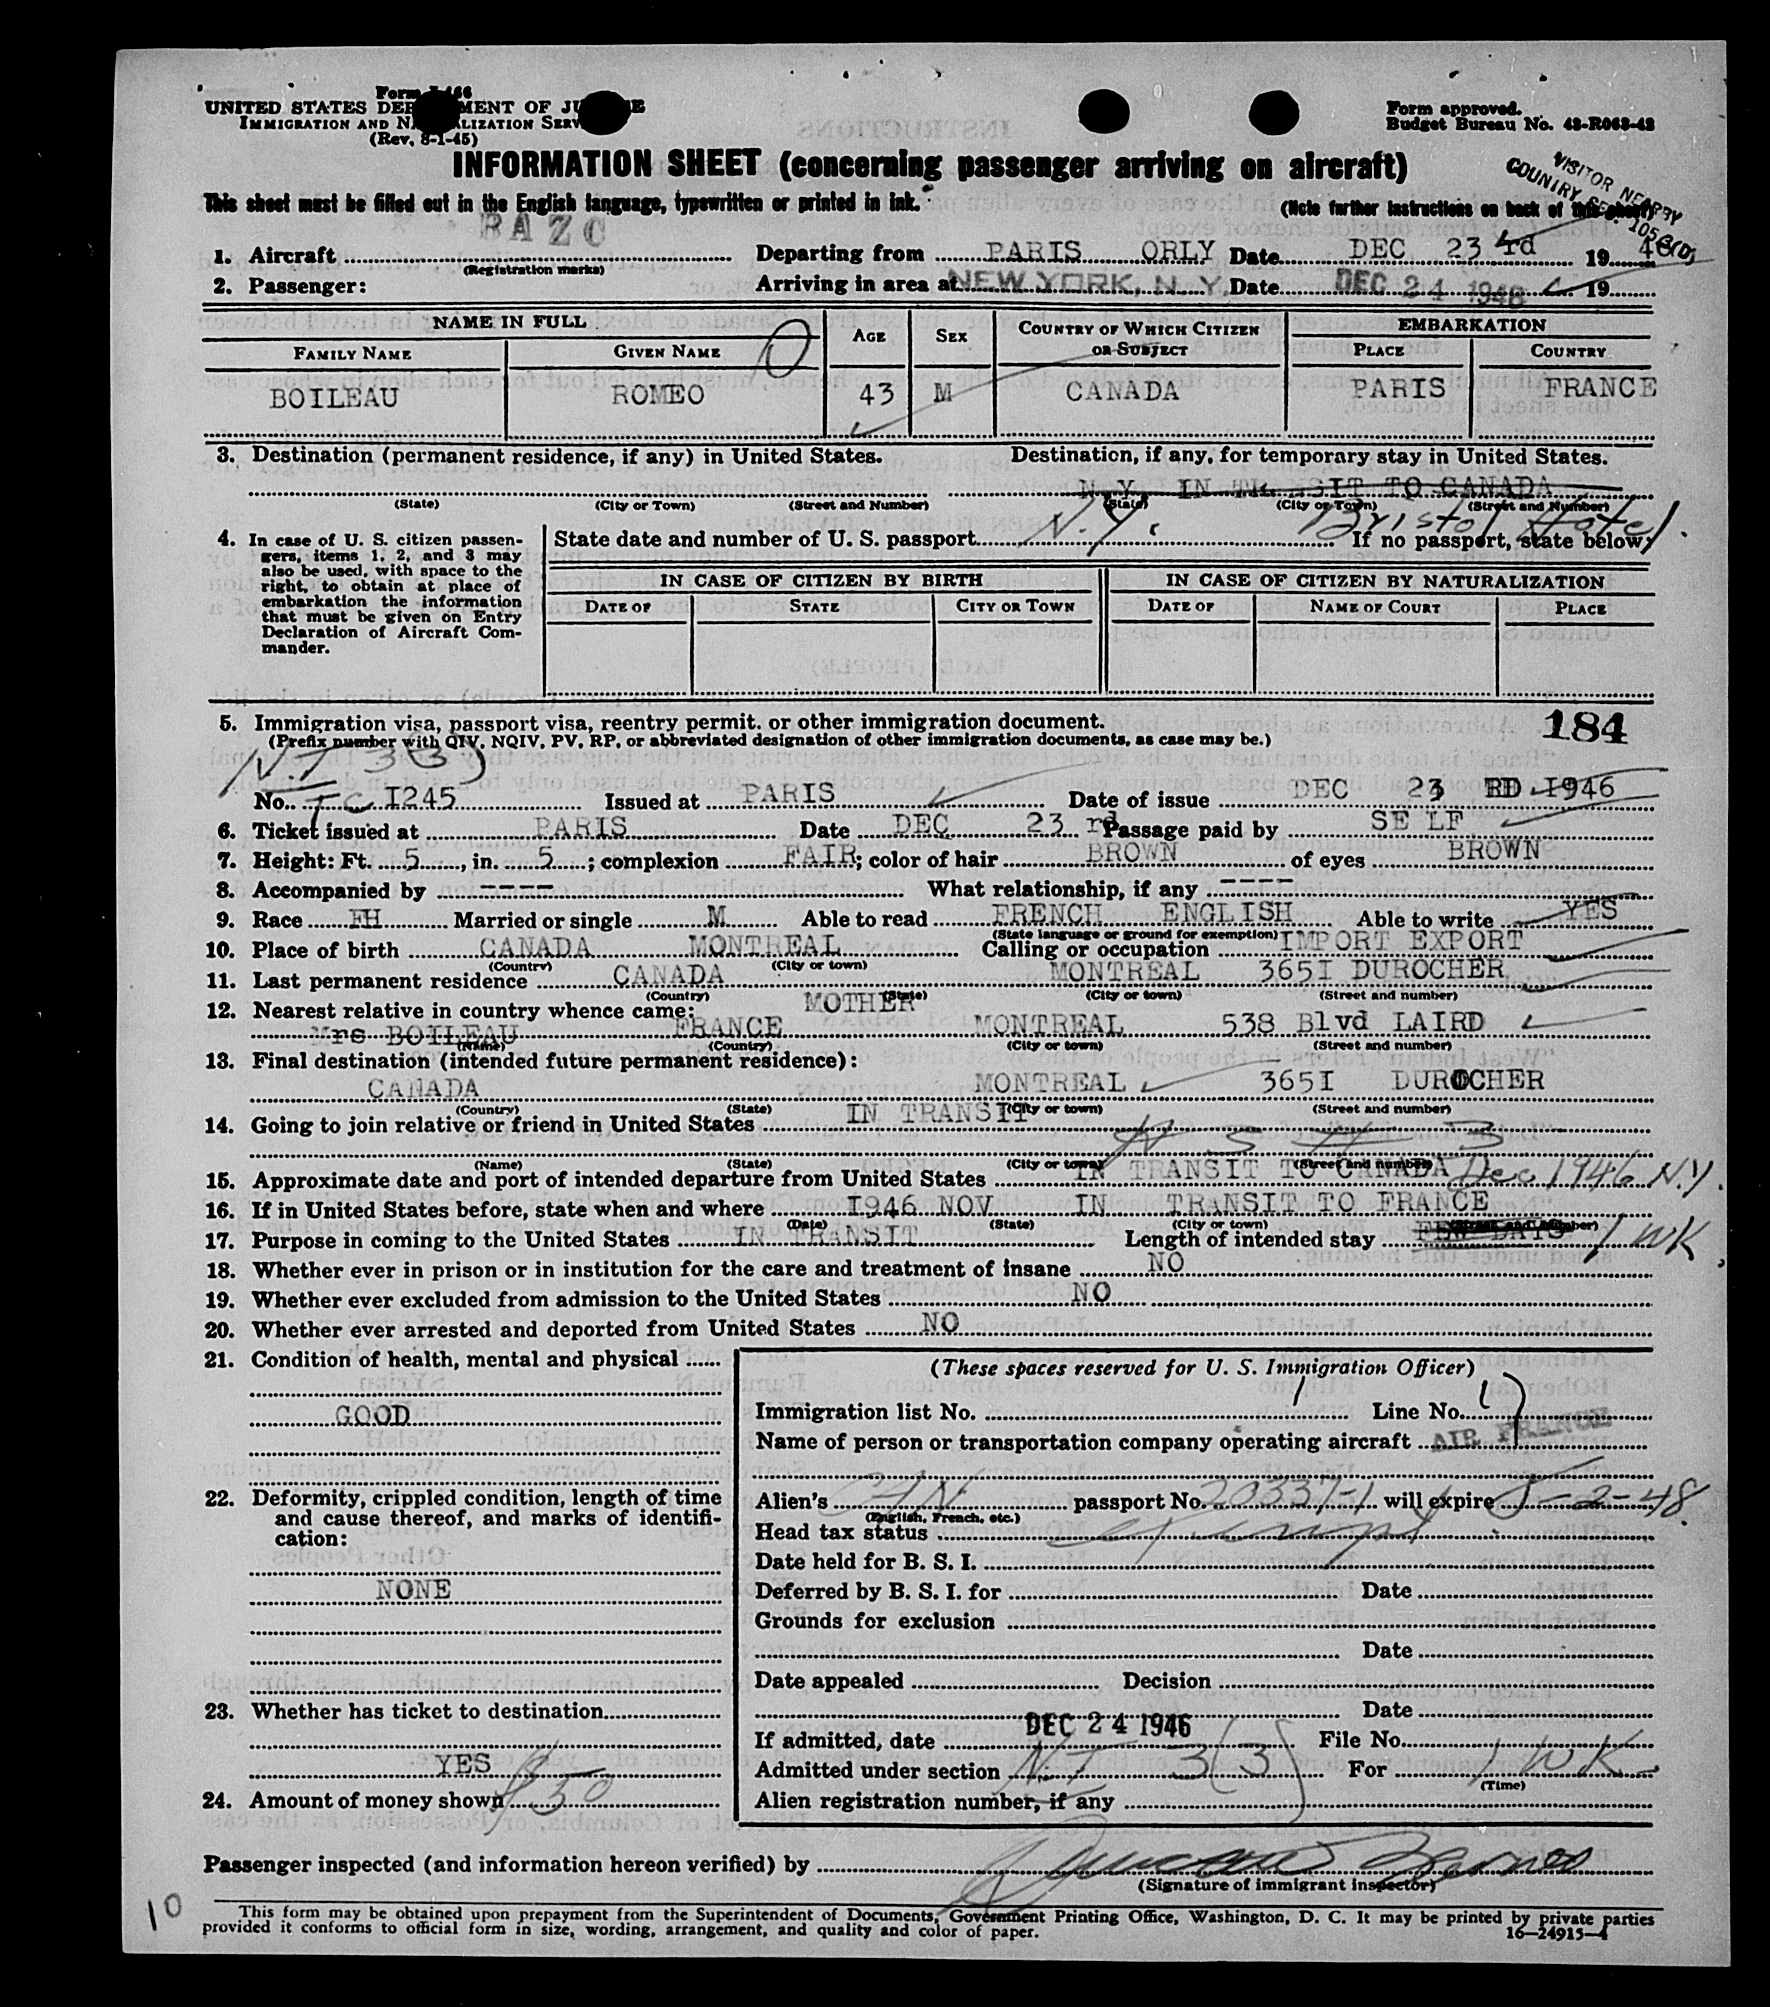 Form I-466
UNITED STATES DEPARTMENT OF JUSTICE
IMMIGRATION AND NATURALIZATION SERVICE
(Rev. 8-1-45)
Form approved.
Budget Bureau No. 43-R063-43
INFORMATION SHEET (concerning passenger arriving on aircraft)
VISITOR NEARBY
COUNTRY SEC.
This sheet must be filled out in the English language, typewritten or printed in ink.
(Note further instructions on back of this sheet)
BAZC
1. Aircraft Departing from PARIS ORLY Date DEC 23 rd 19 46
(Registration marks)
2. Passenger: Arriving in area at NEW YORK, N. Y. Date DEC 24 1946 19
NAME IN FULL AGE SEX COUNTRY OF WHICH CITIZEN OR SUBJECT EMBARKATION
FAMILY NAME GIVEN NAME PLACE COUNTRY
BOILEAU ROMEO 43 M CANADA PARIS FRANCE
3. Destination (permanent residence, if any) in United States. Destination, if any, for temporary stay in United States.
N Y IN TRANSIT TO CANADA
(State) (City or Town) (Street and Number) (State) (City or Town) (Street and Number)
N.Y. Bristol Hotel.
4. In case of U. S. citizen passengers, items 1, 2, and 3 may also be used, with space to the right, to obtain at place of embarkation the information that must be given on Entry Declaration of Aircraft Commander.
State date and number of U. S. passport If no passport, state below:
IN CASE OF CITIZEN BY BIRTH IN CASE OF CITIZEN BY NATURALIZATION
DATE OF STATE CITY OR TOWN DATE OF NAME OF COURT PLACE
5. Immigration visa, passport visa, reentry permit, or other immigration document.
184
(Prefix number with QIV, NQIV, PV, RP, or abbreviated designation of other immigration documents, as case may be.)
N.I 3(3)
No. TC I245 Issued at PARIS Date of issue DEC 23 RD I946
6. Ticket issued at PARIS Date DEC 23 rd Passage paid by SELF
7. Height: Ft. 5, in. 5; complexion FAIR; color of hair BROWN of eyes BROWN
8. Accompanied by ---- What relationship, if any ----
9. Race FH Married or single M Able to read FRENCH ENGLISH Able to write YES
(State language or ground for exemption)
10. Place of birth CANADA MONTREAL Calling or occupation IMPORT EXPORT
(Country) (City or town)
11. Last permanent residence CANADA MONTREAL 365I DUROCHER
(Country) (State) (City or town) (Street and number)
12. Nearest relative in country whence came: MOTHER
Mrs BOILEAU FRANCE MONTREAL 538 Blvd LAIRD
(Name) (Country) (City or town) (Street and number)
13. Final destination (intended future permanent residence):
CANADA MONTREAL 365I DUROCHER
(Country) (State) (City or town) (Street and number)
14. Going to join relative or friend in United States IN TRANSIT
(Name) (State) (City or town) (Street and number)
15. Approximate date and port of intended departure from United States IN TRANSIT TO CANADA Dec 1946 N.Y.
16. If in United States before, state when and where I946 NOV IN TRANSIT TO FRANCE
(Date) (State) (City or town) (Street and number)
17. Purpose in coming to the United States IN TRANSIT Length of intended stay FEW DAYS 1 WK
18. Whether ever in prison or in institution for the care and treatment of insane NO
19. Whether ever excluded from admission to the United States NO
20. Whether ever arrested and deported from United States NO
21. Condition of health, mental and physical
GOOD
22. Deformity, crippled condition, length of time and cause thereof, and marks of identification:
NONE
23. Whether has ticket to destination
YES
24. Amount of money shown $50
(These spaces reserved for U. S. Immigration Officer)
Immigration list No. 1 Line No.
Name of person or transportation company operating aircraft AIR FRANCE
Alien's CAN passport No. 20337-1 will expire 5-2-48.
(English, French, etc.)
Head tax status Exempt
Date held for B. S. I.
Deferred by B. S. I. for Date
Grounds for exclusion
Date
Date appealed Decision
Date
If admitted, date DEC 24 1946 File No.
Admitted under section N.I 3(3) For 1 WK.
(Time)
Alien registration number, if any
Passenger inspected (and information hereon verified) by
(Signature of immigrant inspector)
10
This form may be obtained upon prepayment from the Superintendent of Documents, Government Printing Office, Washington, D. C. It may be printed by private parties
provided it conforms to official form in size, wording, arrangement, and quality and color of paper.
16—24915-4